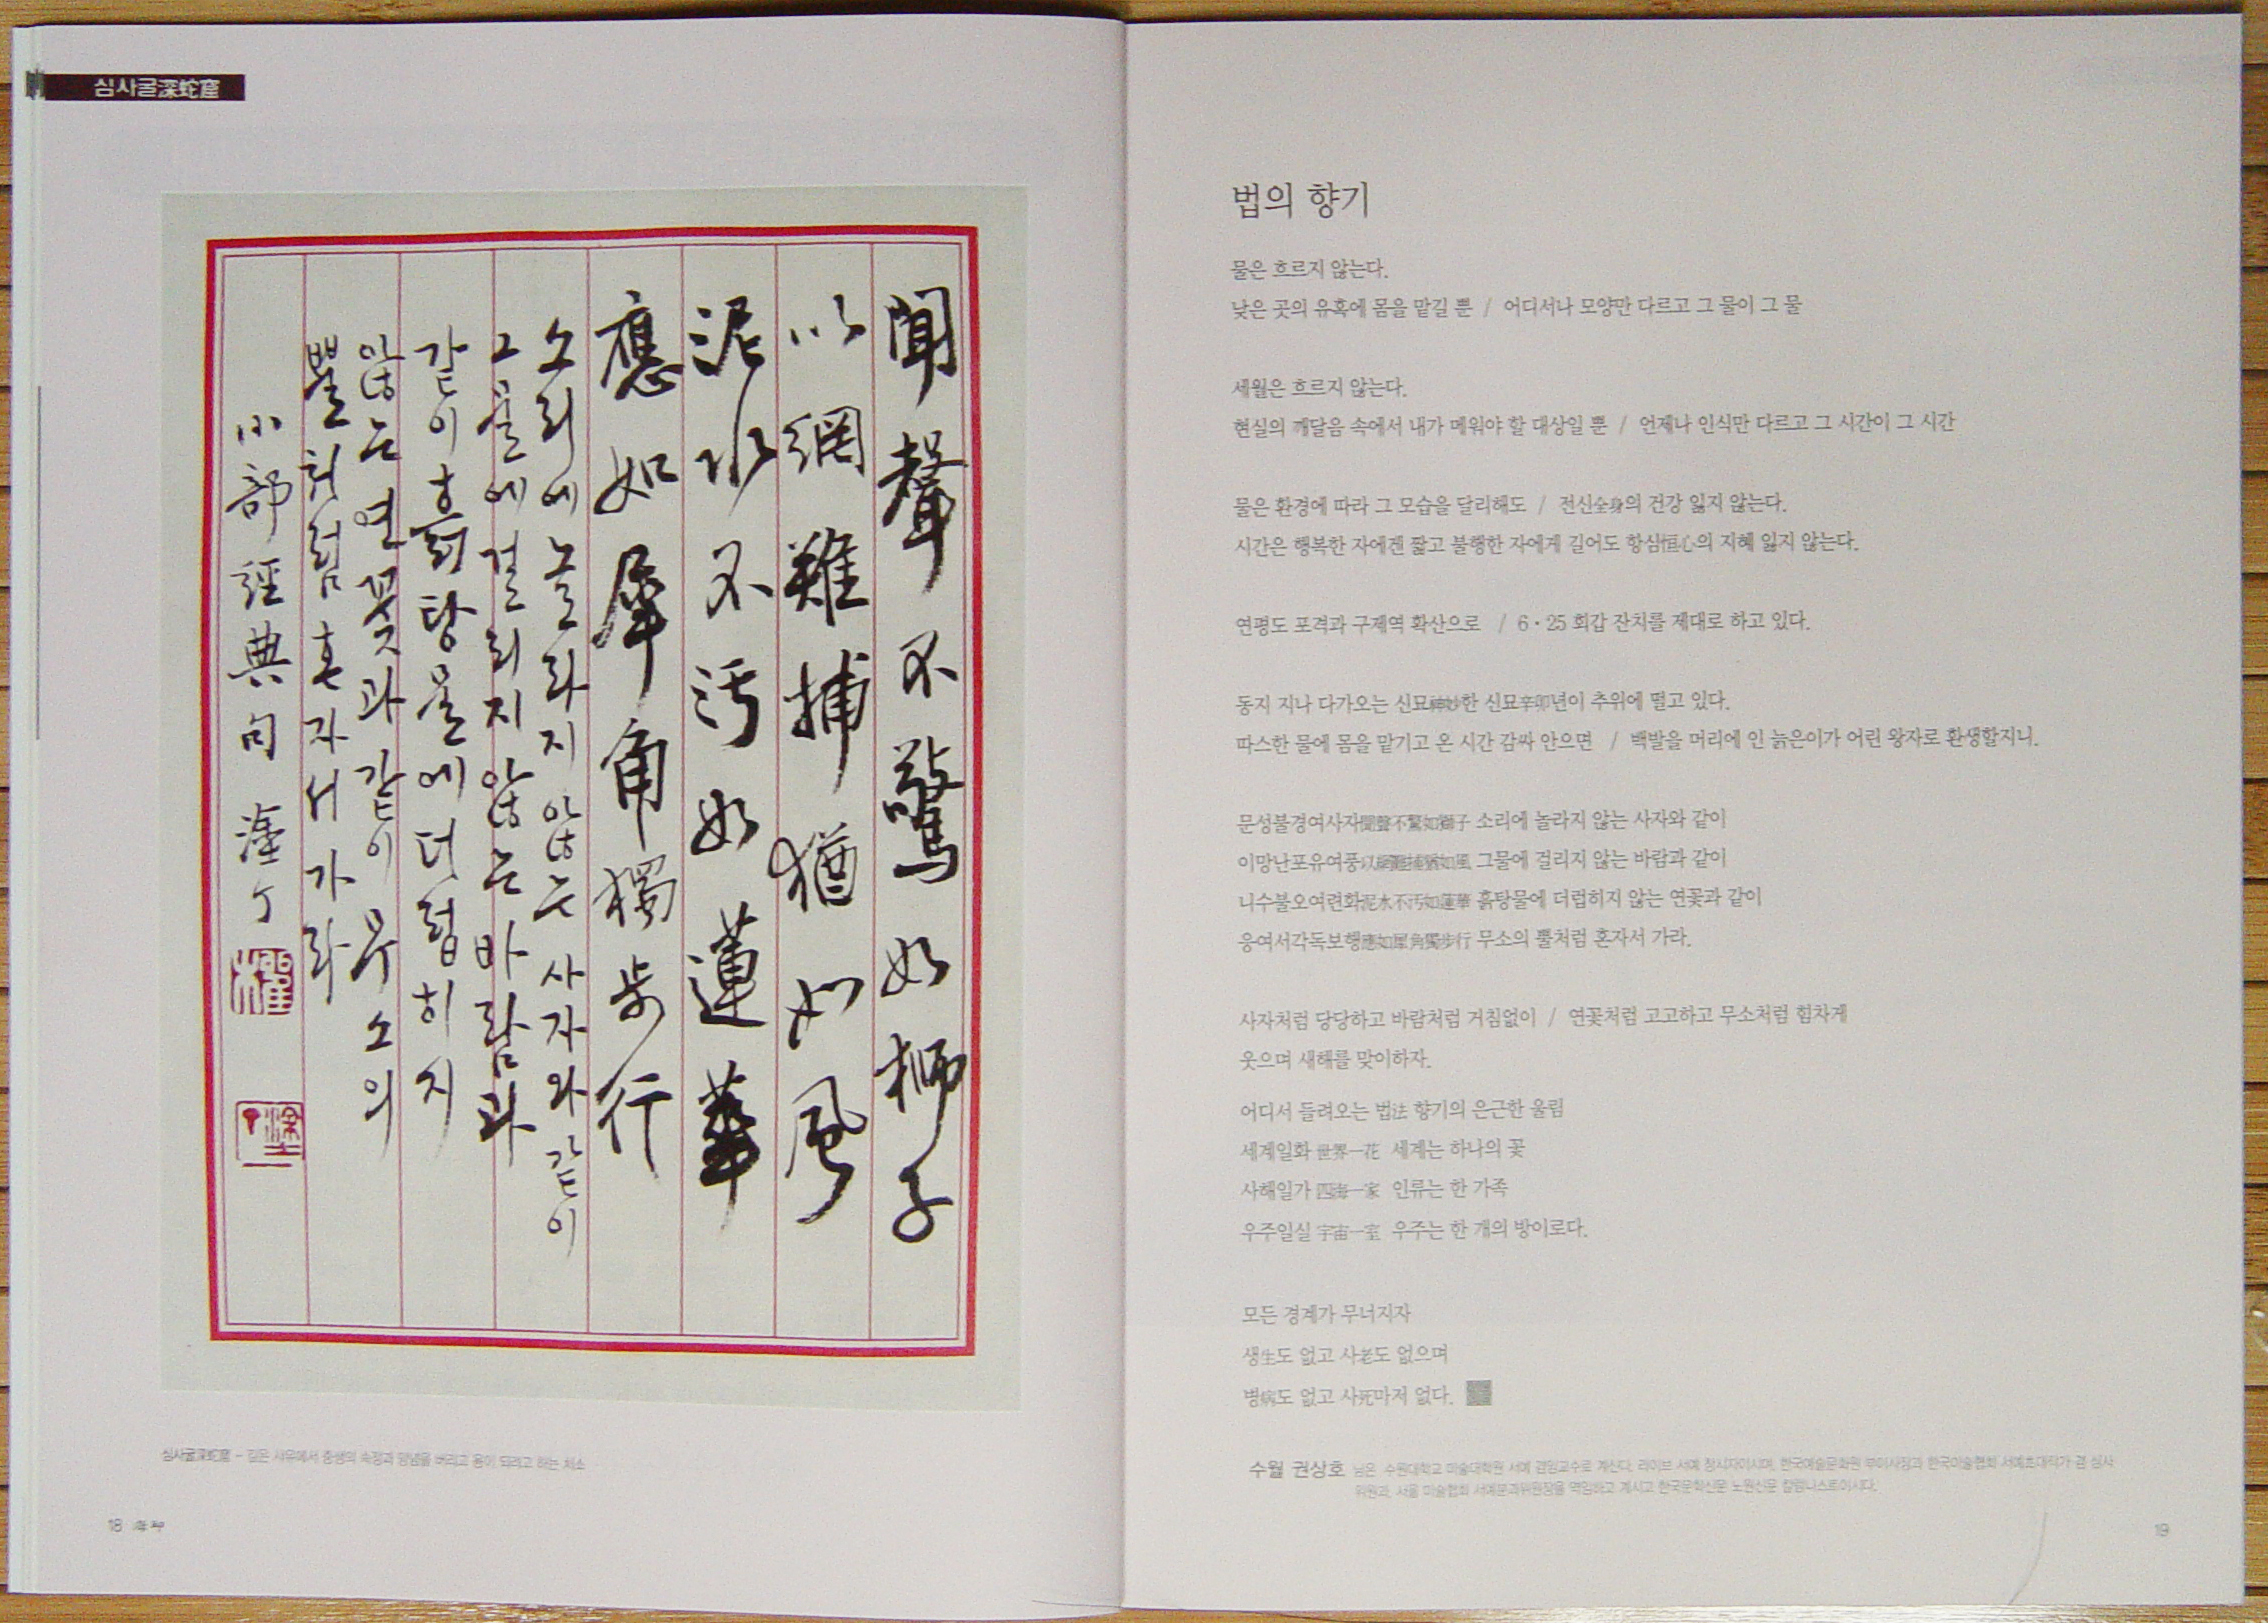 심사굴深蛇窟
聞聲不驚如獅子
以網難捕猶如風
泥水不汚如蓮華
應如犀角獨步行
소리에 놀라지 않는 사자와 같이
그물에 걸리지 않는 바람과
같이 흙탕물에 더럽히지
않는 연꽃과 같이 무소의
뿔처럼 혼자서 가라
小部經典句
심사굴深蛇窟 - 깊은 사유에서 중생의 속정과 망념을 버리고 용이 되려고 하는 처소
18
법의 향기
물은 흐르지 않는다.
낮은 곳의 유혹에 몸을 맡길 뿐 / 어디서나 모양만 다르고 그 물이 그 물
세월은 흐르지 않는다.
현실의 깨달음 속에서 내가 메워야 할 대상일 뿐 / 언제나 인식만 다르고 그 시간이 그 시간
물은 환경에 따라 그 모습을 달리해도 / 전신全身의 건강 잃지 않는다.
시간은 행복한 자에겐 짧고 불행한 자에게 길어도 항심恒心의 지혜 잃지 않는다.
연평도 포격과 구제역 확산으로 / 6·25 회갑 잔치를 제대로 하고 있다.
동지 지나 다가오는 신묘神妙한 신묘辛卯년이 추위에 떨고 있다.
따스한 물에 몸을 맡기고 온 시간 감싸 안으면 / 백발을 머리에 인 늙은이가 어린 왕자로 환생할지니.
문성불경여사자聞聲不驚如獅子 소리에 놀라지 않는 사자와 같이
이망난포유여풍以網難捕猶如風 그물에 걸리지 않는 바람과 같이
니수불오여련화泥水不汚如蓮華 흙탕물에 더럽히지 않는 연꽃과 같이
응여서각독보행應如犀角獨步行 무소의 뿔처럼 혼자서 가라.
사자처럼 당당하고 바람처럼 거침없이 / 연꽃처럼 고고하고 무소처럼 힘차게
웃으며 새해를 맞이하자.
어디서 들려오는 법法 향기의 은근한 울림
세계일화 世界一花 세계는 하나의 꽃
사해일가 四海一家 인류는 한 가족
우주일실 宇宙一室 우주는 한 개의 방이로다.
모든 경계가 무너지자
생生도 없고 사老도 없으며
병病도 없고 사死마저 없다.
수월 권상호 님은 수원대학교 미술대학원 서예 겸임교수로 계신다. 라이브 서예 창시자이시며, 한국예술문화원 부이사장과 한국미술협회 서예초대작가 겸 심사
위원과, 서울 미술협회 서예분과위원장을 역임하고 계시고 한국문학신문 노원신문 칼럼니스트이시다.
19